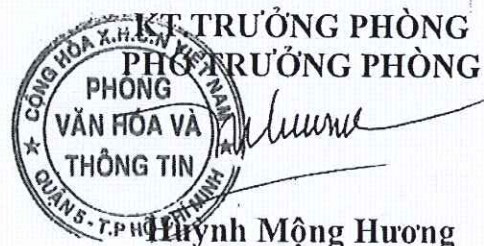 KT TRƯỞNG PHÒNG
PHÓ TRƯỞNG PHÒNG
CỘNG HÒA X.H.C.N VIỆT NAM
PHÒNG
VĂN HÓA VÀ
THÔNG TIN
QUẬN 5 - T.P HỒ CHÍ MINH
Huỳnh Mộng Hương